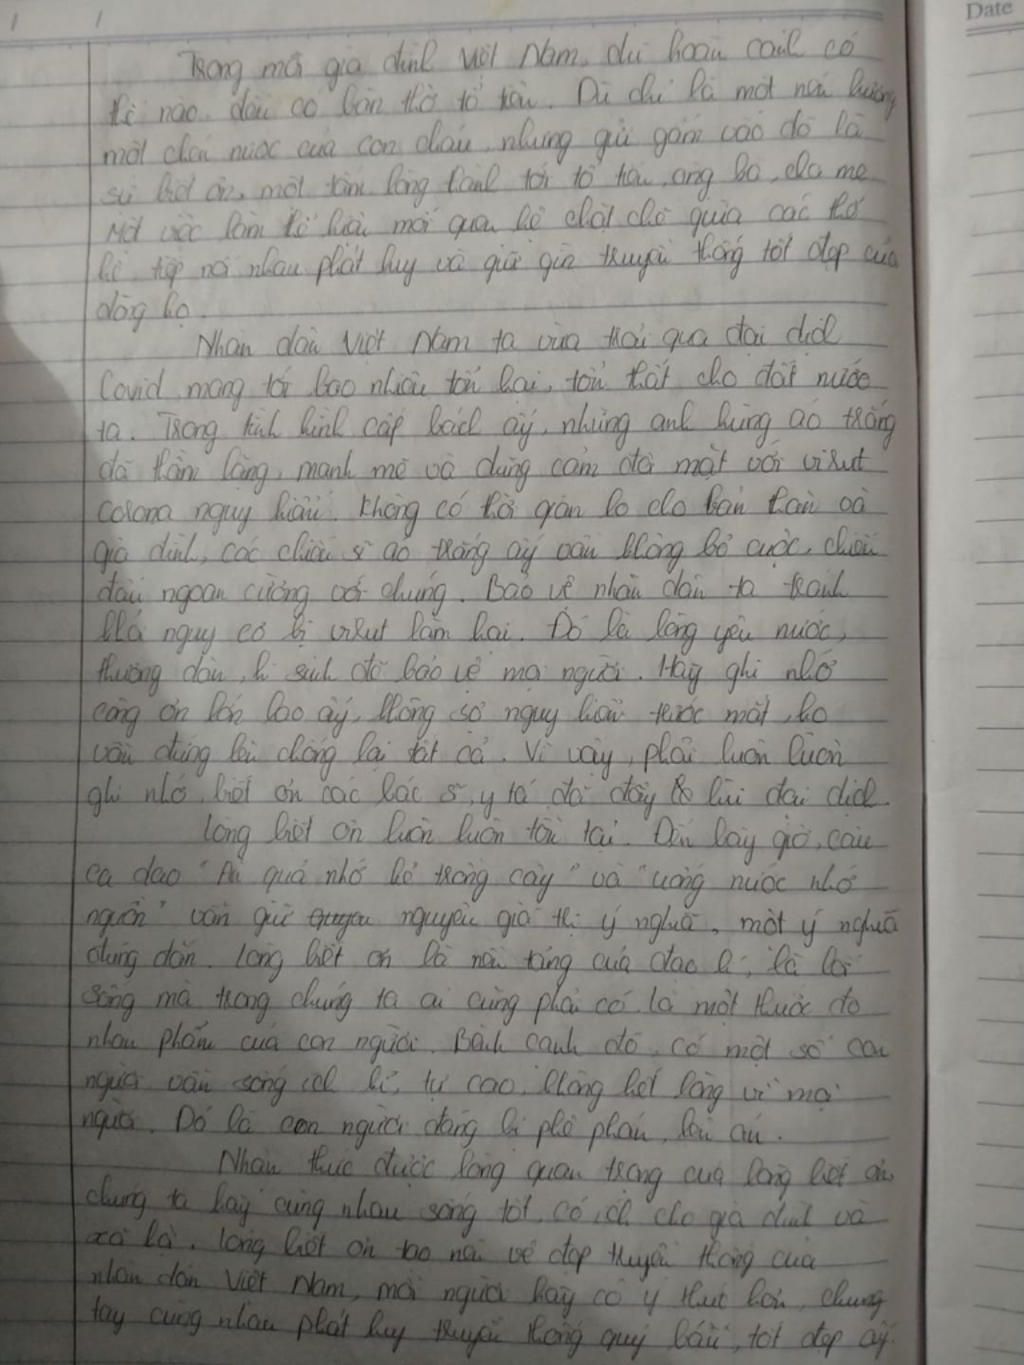 Trong mỗi gia đình Việt Nam, dù hoàn cảnh có
thế nào, đều có bàn thờ tổ tiên. Dù chỉ là một nén hương
một chén nước của con cháu, nhưng gửi gắm vào đó là
sự biết ơn, một tấm lòng thành tới tổ tiên, ông bà, cha mẹ
Một việc làm thể hiện mối quan hệ chặt chẽ giữa các thế
hệ, tiếp nối nhau phát huy và giữ gìn truyền thống tốt đẹp của
dòng họ.
Nhân dân Việt Nam ta vừa trải qua đại dịch
Covid mang tới bao nhiêu tổn hại, tổn thất cho đất nước
ta. Trong tình hình cấp bách ấy, những anh hùng áo trắng
đã thầm lặng, mạnh mẽ và dũng cảm đối mặt với virut
corona nguy hiểm. Không có thời gian lo cho bản thân và
gia đình, các chiến sĩ áo trắng ấy vẫn không bỏ cuộc, chiến
đấu ngoan cường với chúng. Bảo vệ nhân dân ta tránh
khỏi nguy cơ bị virut làm hại. Đó là lòng yêu nước,
thương dân, hi sinh để bảo vệ mọi người. Hãy ghi nhớ
công ơn lớn lao ấy, không sợ nguy hiểm trước mắt, họ
vẫn đứng lên chống lại tất cả. Vì vậy, phải luôn luôn
ghi nhớ, biết ơn các bác sĩ, y tá đã đẩy lùi đại dịch.
Lòng biết ơn luôn luôn tồn tại. Đến bây giờ, câu
ca dao "Ăn quả nhớ kẻ trồng cây" và "uống nước nhớ
nguồn" vẫn giữ nguyên giá trị ý nghĩa, một ý nghĩa
đúng đắn. Lòng biết ơn là nền tảng của đạo lí, là lối
sống mà trong chúng ta ai cũng phải có, là một thước đo
nhân phẩm của con người. Bên cạnh đó, có một số con
người vẫn sống ích kỉ, tự cao, không hết lòng vì mọi
người. Đó là con người đáng bị phê phán, lên án.
Nhận thức được tầm quan trọng của lòng biết ơn,
chúng ta hãy cùng nhau sống tốt, có ích cho gia đình và
xã hội. Lòng biết ơn tạo nên vẻ đẹp truyền thống của
nhân dân Việt Nam, mỗi người hãy có ý thức hơn, chung
tay cùng nhau phát huy truyền thống quý báu, tốt đẹp ấy.
Date